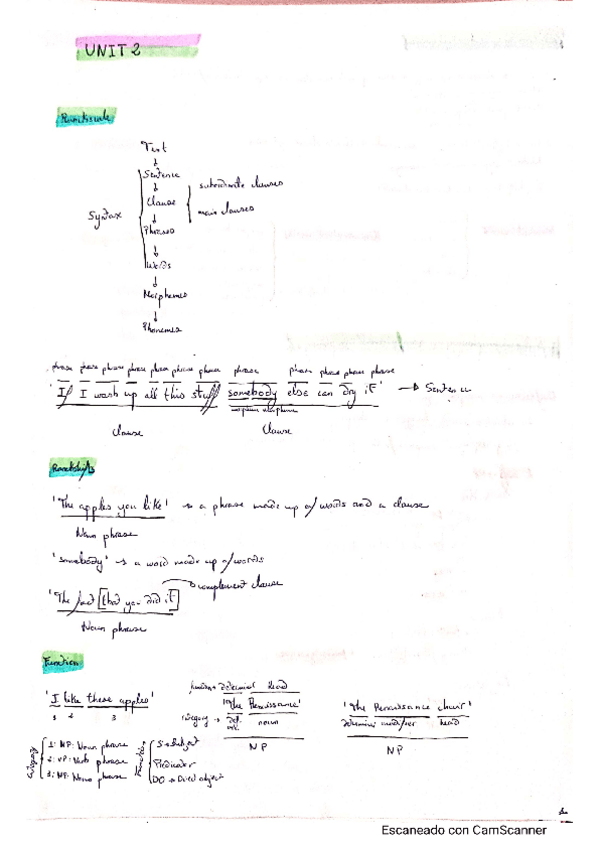 UNIT 2
Rankscale
Text
Sentence
Clause
subordinate clauses
main clauses
Syntax
Phrases
Words
Morphemes
Phonemes
phrase phrase phrase phrase phrase phrase phrase phrase phrase phrase phrase phrase
'If I wash up all this stuff somebody else can dry it' → Sentence
clause Clause
Rankshift
'The apples you like' → a phrase made up of words and a clause
Noun phrase
'somebody' → a word made up of words
complement clause
'The fact [that you did it]
Noun phrase
Function
'I like these apples'
1 2 3
Category
1: NP: Noun phrase
2: VP: Verb phrase
3: NP: Noun phrase
S → Subject
Predicator
DO → Direct object
function → determiner head
'The Renaissance'
category → noun
NP
'The Renaissance choir'
modifier head
NP
Escaneado con CamScanner